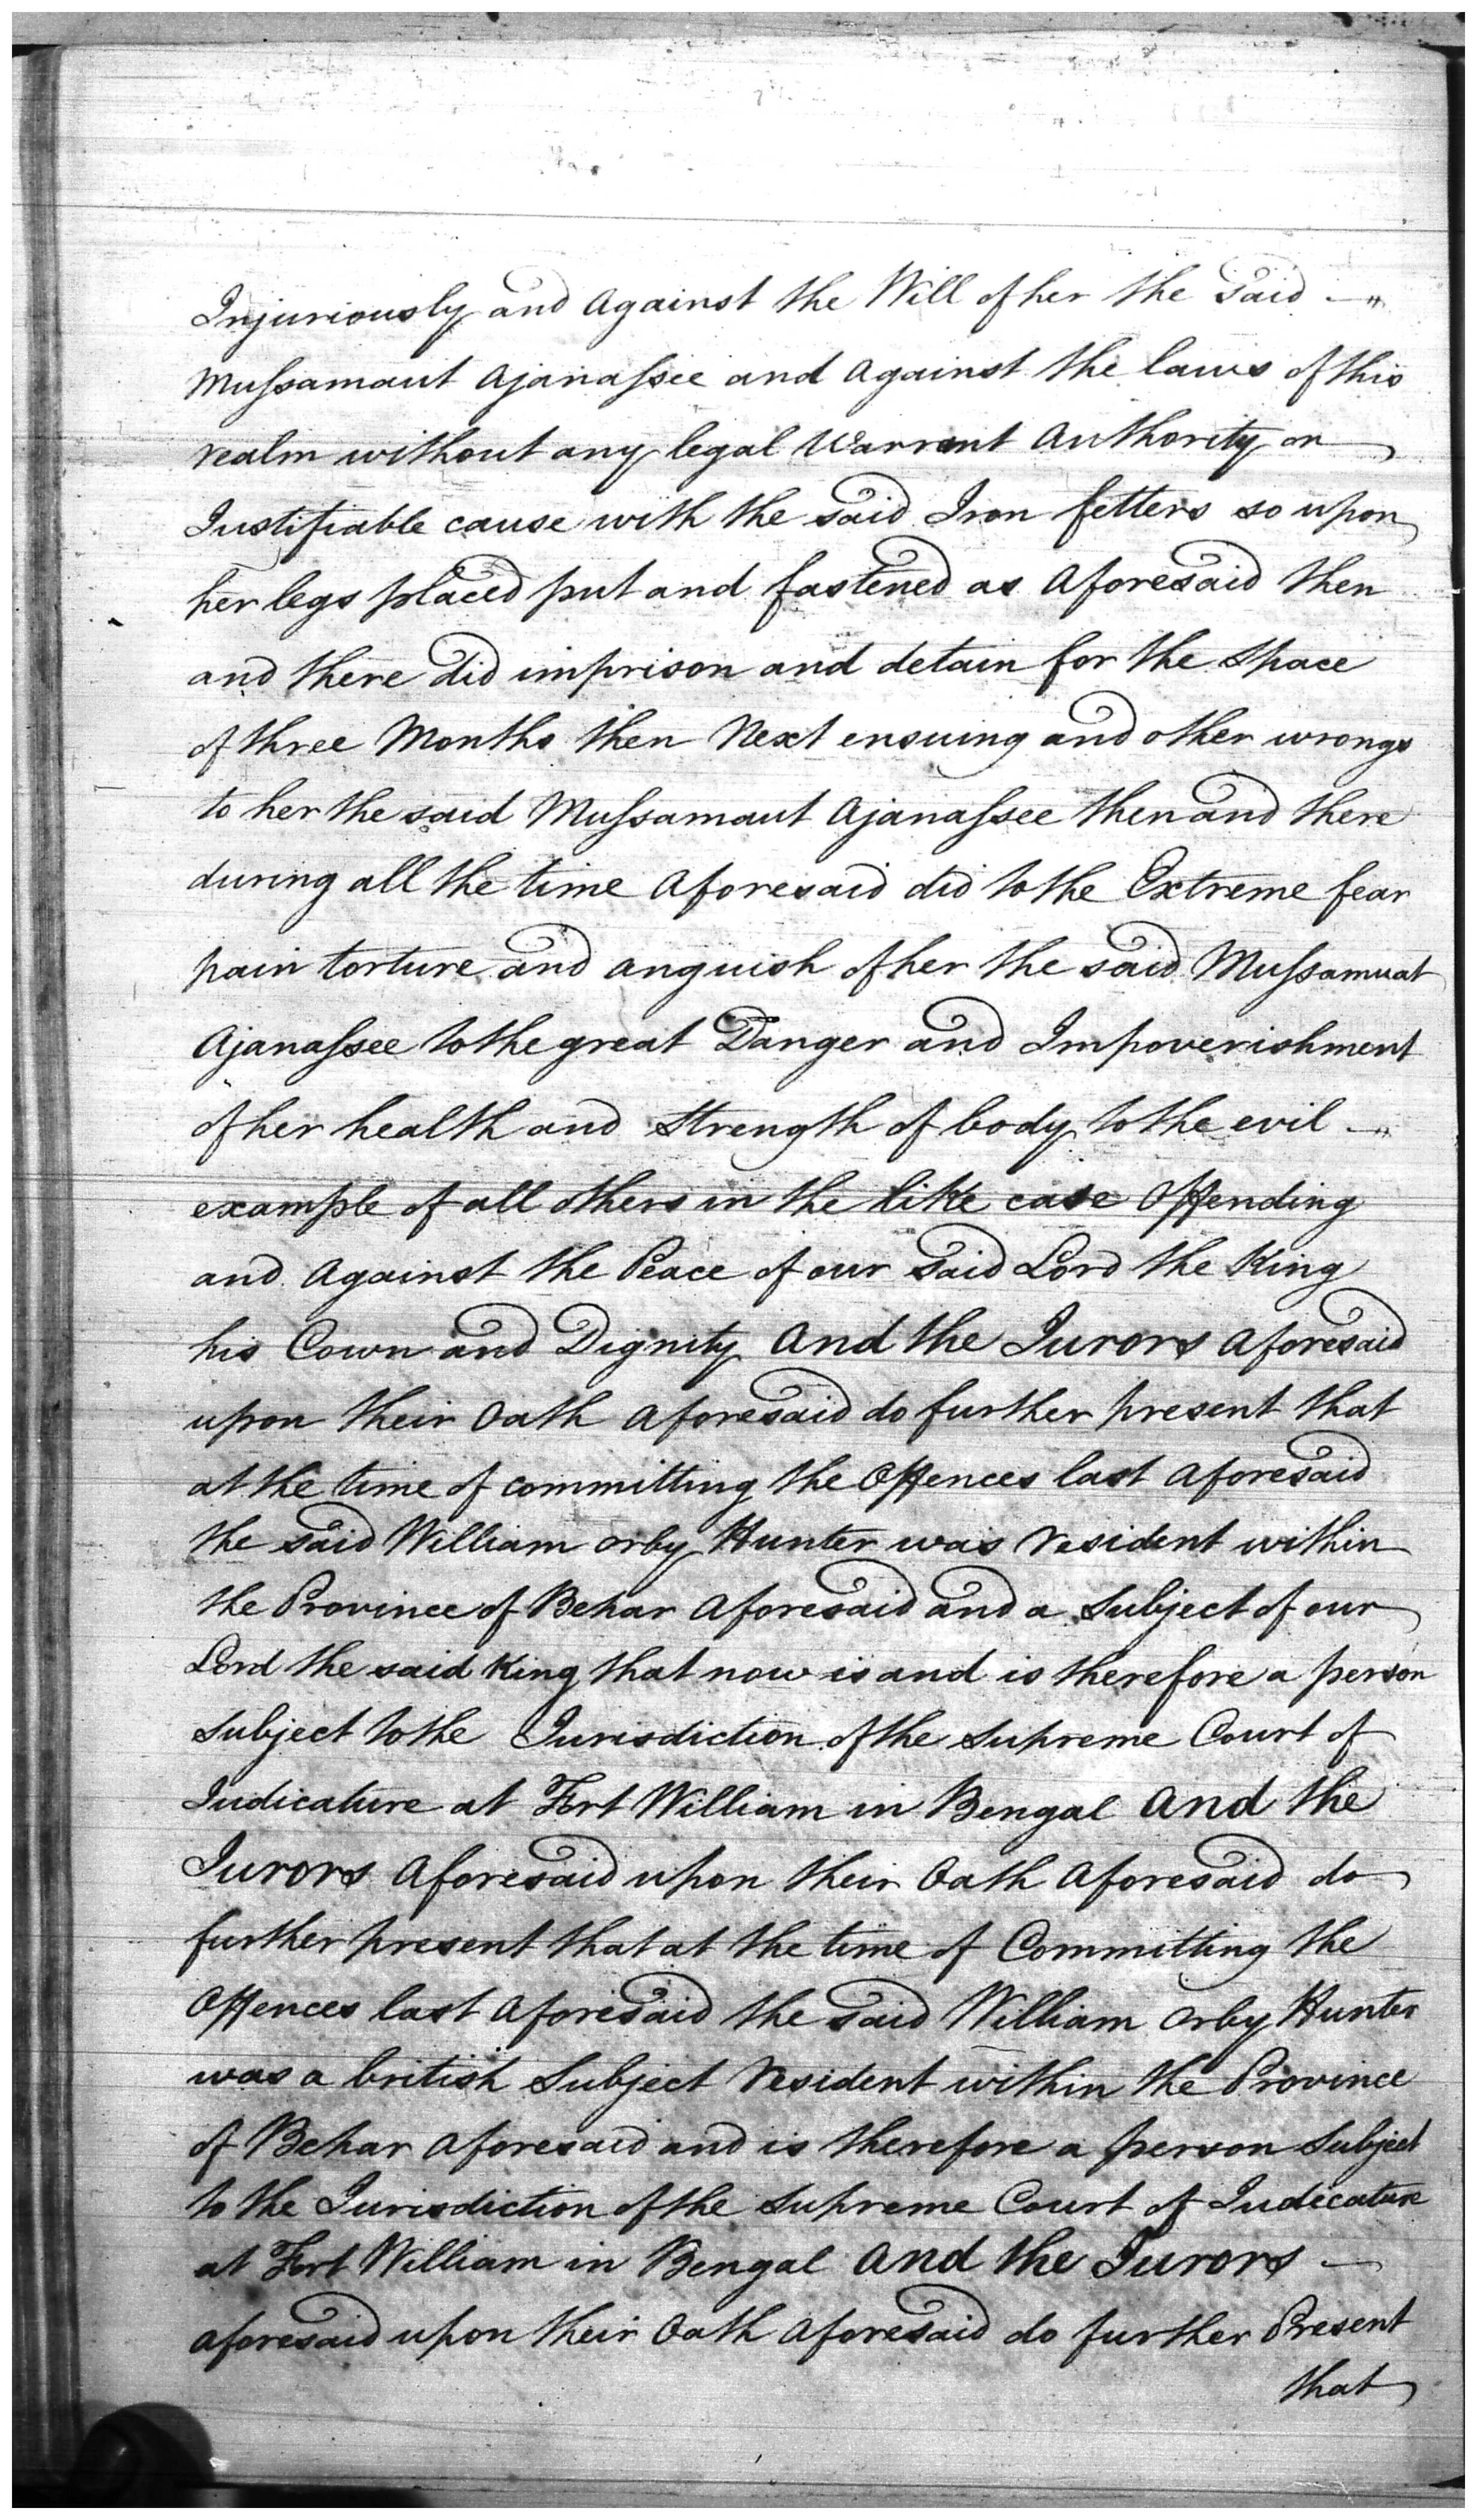 Injuriously and Against the Will of her the said —"
Mussamaut Ajanassee and against the laws of this
realm without any legal Warrant Authority or
Justifiable cause with the said Iron fetters so upon
her legs placed put and fastened as Aforesaid then
and there did imprison and detain for the space
of three Months then Next ensuing and other wrongs
to her the said Mussamaut Ajanassee then and there
during all the time Aforesaid did to the Extreme fear
pain torture and anguish of her the said Mussamuat
Ajanassee to the great Danger and Impoverishment
of her health and Strength of body to the evil —"
example of all others in the like case Offending
and Against the Peace of our Said Lord the King
his Cown and Dignity And the Jurors aforesaid
upon their Oath aforesaid do further present that
at the time of committing the Offences last aforesaid
the said William orby Hunter was resident within
the Province of Behar Aforesaid and a Subject of our
Lord the said King that now is and is therefore a person
Subject to the Jurisdiction of the Supreme Court of
Judicature at Fort William in Bengal And the
Jurors Aforesaid upon their Oath Aforesaid do
further present that at the time of Committing the
Offences last Aforesaid the said William orby Hunter
was a british Subject Resident within the Province
of Behar Aforesaid and is therefore a person Subject
to the Jurisdiction of the Supreme Court of Judicature
at Fort William in Bengal And the Jurors —
aforesaid upon their Oath Aforesaid do further Present
that